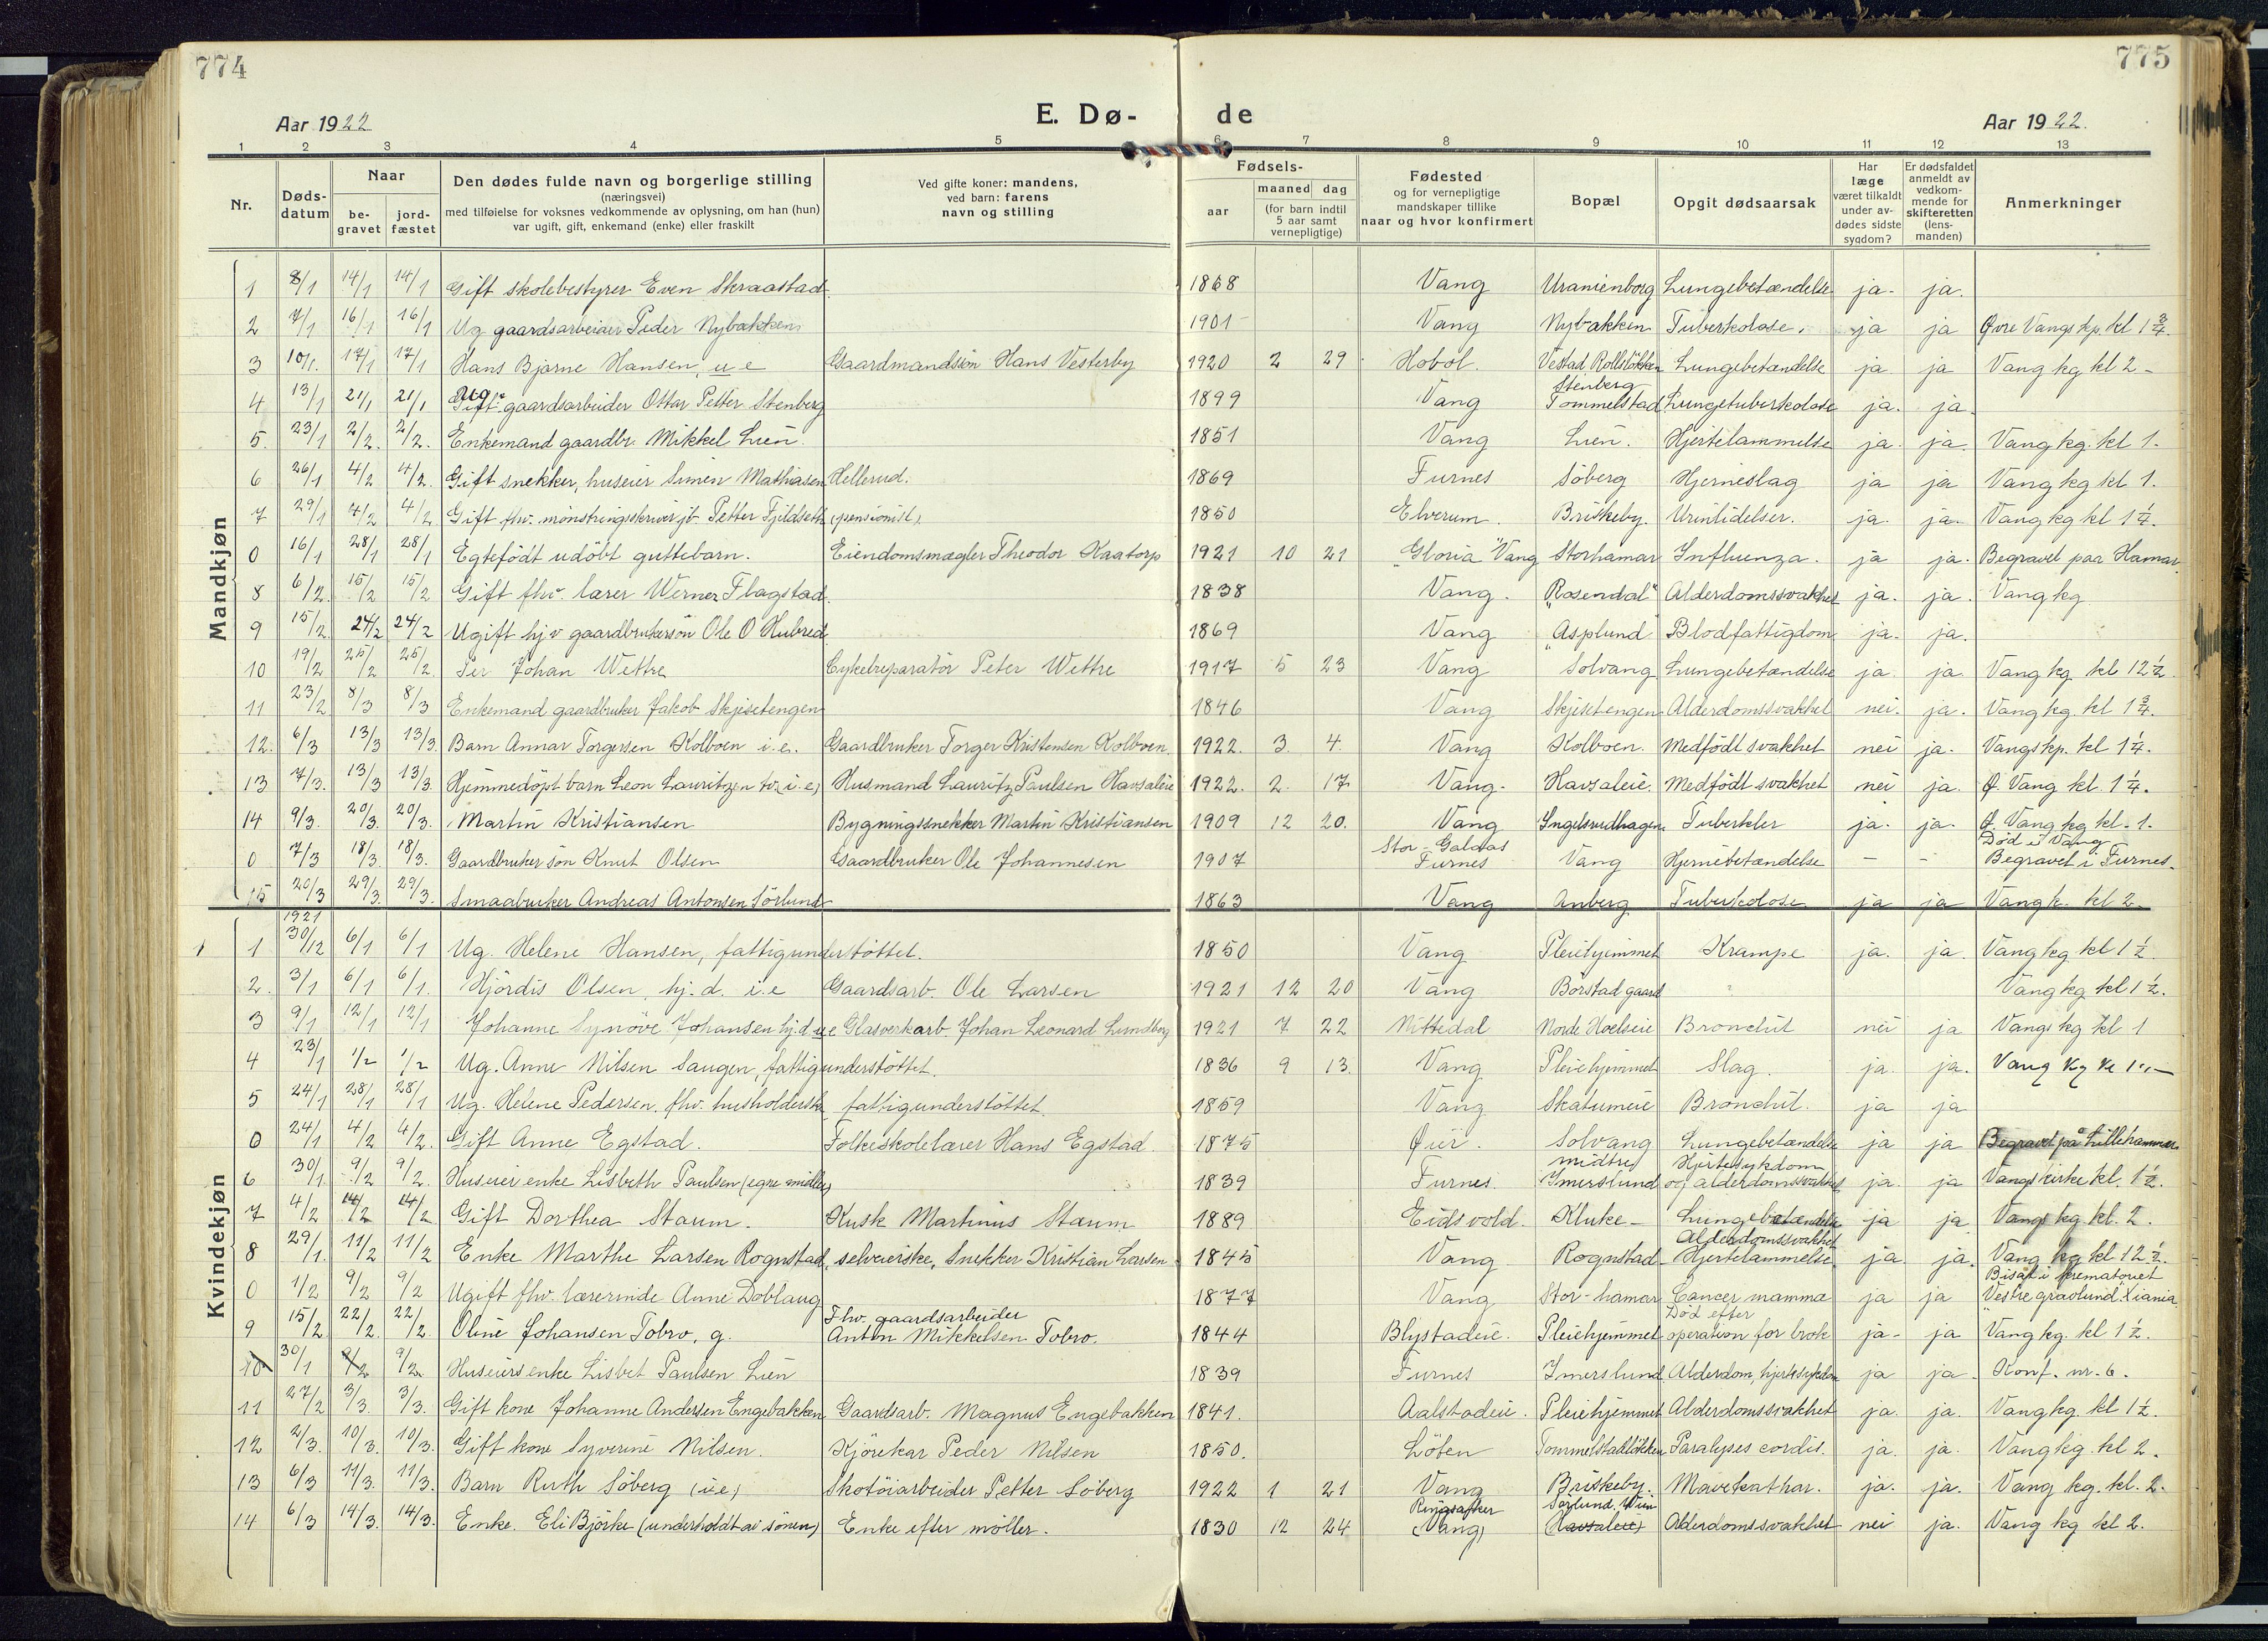 774
775
Aar 1922
E. Dø-
de
Aar 1922.
1 2 3 4 5 6 7 8 9 10 11 12 13
Nr.
Døds-
datum
Naar
be-
gravet
jord-
fæstet
Den dødes fulde navn og borgerlige stilling
(næringsvei)
med tilføielse for voksnes vedkommende av oplysning, om han (hun)
var ugift, gift, enkemand (enke) eller fraskilt
Ved gifte koner: mandens,
ved barn: farens
navn og stilling
Fødsels-
aar
maaned dag
(for barn indtil
5 aar samt
vernepligtige)
Fødested
og for vernepligtige
mandskaper tillike
naar og hvor konfirmert
Bopæl
Opgit dødsaarsak
Har
læge
været tilkaldt
under av-
dødes sidste
sygdom?
Er dødsfaldet
anmeldt av
vedkom-
mende for
skifteretten
(lens-
manden)
Anmerkninger
Mandkjøn
1 8/1 14/1 14/1 Gift skolebestyrer Even Skraastad. 1868 Vang Uranienborg Lungebetændelse ja. ja.
2 7/1 16/1 16/1 Ug. gaardsarbeider Peder Nybakken 1901 Vang Nybakken Tuberkolose. ja ja Øvre Vangs kp. kl 1 3/4.
3 10/1. 17/1 17/1 Hans Bjarne Hansen, u e Gaardmandssön Hans Vesterby 1920 2 29 Hoböl. Vestad Rollsløkken Lungebetændelse ja ja Vang kg kl 2 -
4 13/1 21/1 21/1 Ug. gaardsarbeider Ottar Petter Stenberg 1899 Vang Stenberg Tommelstad Lungetuberkolose ja. ja.
5. 23/1 2/2. 2/2. Enkemand gaardbr. Mikkel Lien. 1851 Vang Lien. Hjertelammelse ja. ja. Vang kg. kl 1.
6 26/1 4/2 4/2. Gift snekker, huseier Simen Mathiasen Hellerud. 1869 Furnes Söberg Hjerneslag ja ja Vang kg kl 1.
7 29/1 4/2 4/2 Gift fhv. mönstringsskriver jb. Petter Fjildseth (pensionist). 1850 Elverum. Briskeby. Urinlidelser. ja. ja. Vang kg kl 1 1/4.
0 16/1 28/1 28/1 Egtefödt udöbt guttebarn. Eiendomsmægler Theodor Kaatorp 1921 10 21 "Gloria" Vang Storhamar Influenza. ja ja. Begravet paa Hamar.
8 6/2. 15/2 15/2 Gift fhv. lærer Werner Flagstad. 1838 Vang. "Rosendal" Alderdomssvakhet ja. ja. Vang kg
9 15/2. 24/2 24/2 Ugift hjv gaardbrukersön Ole O Hubred. 1869 Vang "Asplund" Blodfattigdom ja. ja.
10 19/2 25/2 25/2. Per Johan Wettre Cykelreparatör Peter Wettre 1917 5 23 Vang Solvang Lungebetændelse ja. ja Vang kg kl 12 1/2.
11 23/2 8/3 8/3 Enkemand gaardbruker Jakob Skjisetengen 1846 Vang Skjisetengen Alderdomssvakhet nei. ja. Vang kg. kl 1 3/4.
12. 6/3 13/3 13/3. Barn Annar Torgersen Kolboen i. e. Gaardbruker Torger Kristensen Kolboen. 1922. 3. 4. Vang Kolboen. Medfödt svakhet nei ja. Vangs kp. kl 1 1/4.
13 7/3. 13/3 13/3. Hjemmedöpt barn Leon Lauritzen tv. (i. e.) Husmand Lauritz Paulsen Havsaleie 1922. 2. 17 Vang. Havsaleie. Medfödt svakhet nei ja. Ø. Vang kl. 1 1/4.
14 9/3. 20/3. 20/3. Martin Kristiansen Bygningssnekker Martin Kristiansen 1909 12 20. Vang Ingelsrudhagen Tuberkler ja. ja. Ø. Vang kg kl. 1.
0 7/3 18/3. 18/3. Gaardbruker sön Knut Olsen Gaardbruker Ole Johannesen 1907 Stor-Galaas Furnes Vang Hjernebetændelse - - Död i Vang. Begravet i Furnes.
15 20/3 29/3. 29/3. Smaabruker Andreas Antonsen Sörlund 1863 Vang Anberg Tuberkolose ja ja Vang k. kl 2
Kvindekjøn
1 1 1921 30/12 6/1 6/1 Ug. Helene Hansen, fattigunderstöttet. 1850 Vang Pleiehjemmet Krampe ja. ja. Vang kg kl 1 1/2.
2. 3/1 6/1 6/1. Hjördis Olsen, hj. d. i. e Gaardsarb. Ole Larsen 1921 12 20 Vang Börstad gaard Vang kg kl 1 1/2.
3 9/1 12/1 12/1 Johanne Synöve Johansen hj. d. u e Glasverkarb. Johan Leonard Lundberg 1921 7 22 Nittedal Nordr Hoelseie Bronchit nei ja Vangs kg kl 1
4 23/1 1/2 1/2 Ug. Anne Nilsen Saugen, fattigunderstöttet. 1836 9 13. Vang Pleiehjemmet Slag. ja. ja. Vang kg kl 1
5 24/1 28/1 28/1 Ug. Helene Pedersen, fhv. husholderske fattigunderstöttet. 1859 Vang Skatumeie Bronchit. ja ja
0 24/1 4/2 4/2. Gift Anne Egstad. Folkeskolelærer Hans Egstad. 1875 Øier. Solvang Lungebetændelse ja ja Begravet på Lillehammer
6 30/1. 9/2 9/2. Huseier enke Lisbeth Paulsen (egne midler) 1839 Furnes. midtre Imerslund Hjertesykdom og alderdomssvakhet ja. ja Vangs kirke kl. 1 1/2.
7 4/2 14/2 14/2 Gift Dorthea Staum. Kusk Martinus Staum 1889 Eidsvold. Kluke - Lungebetændelse ja ja. Vangs kg. kl. 2.
8 29/1. 11/2 11/2 Enke Marthe Larsen Rognstad, selveierske, Snekker Kristian Larsen 1845 Vang Rognstad Alderdomssvakhet Hjertelammelse ja. ja. Vang kg kl 12 1/2.
0 1/2 9/2 9/2 Ugift fhv. lærerinde Anne Doblaug 1877 Vang Stor-hamar Cancer mamma ja ja Bisat i krematoriet Vestre gravlund, Xiania
9 15/2 22/2. 22/2. Oline Johansen Tobro, g. Fhv. gaardsarbeider Anton Mikkelsen Tobro. 1844 Blystadeie. Pleiehjemmet Död efter operation for brok ja- ja Vang kg. kl 1 1/2.
10 30/1 9/2 9/2 Huseiersenke Lisbet Paulsen Lien 1839 Furnes Imerslund Alderdom, hjertesykdom ja ja. Konf. nr. 6.
11 27/2 3/3. 3/3. Gift kone Johanne Andersen Engebakken Gaardsarb. Magnus Engebakken 1841. Aalstadeie. Pleiehjemmet Alderdomssvakhet ja. ja. Vang kg. kl 1 1/2.
12 2/3. 10/3. 10/3. Gift kone Syverine Nilsen. Kjörekar Peder Nilsen 1850. Löten Tommelstadlökken Paralyses cordis. ja. ja. Vang kg. kl 2.
13 6/3 11/3. 11/3. Barn Ruth Söberg (u. e) Skotöiarbeider Petter Söberg 1922 1 21 Vang Briskeby. Mavekathar. ja. ja. Vang kg. kl. 2.
14 6/3 14/3. 14/3. Enke. Eli Björke (underholdt av sönen) Enke efter möller. 1830 12 24 Ringsaker (Vang) Sörlund, (Havsaleie) Alderdomssvakhet nei ja. Vang kg kl 2.